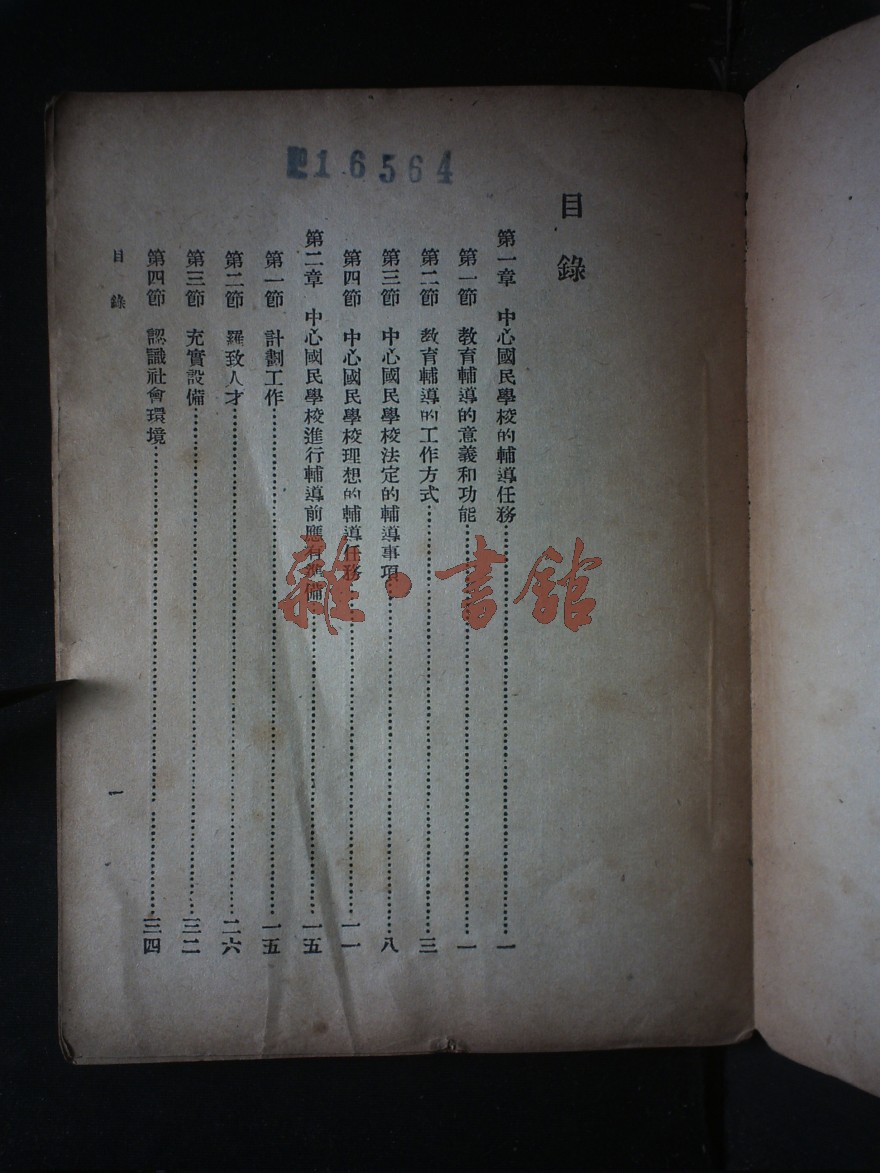 №16564
目錄
第一章 中心國民學校的輔導任務……一
第一節 教育輔導的意義和功能……一
第二節 教育輔導的工作方式……三
第三節 中心國民學校法定的輔導事項……八
第四節 中心國民學校理想的輔導任務……一一
第二章 中心國民學校進行輔導前應有準備……一五
第一節 計劃工作……一五
第二節 羅致人才……二六
第三節 充實設備……三二
第四節 認識社會環境……三四
目錄
一
雜·書館